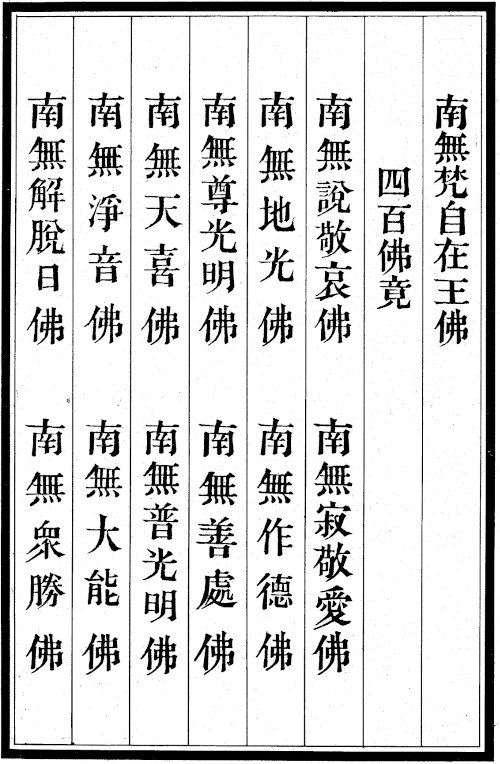 南無梵自在王佛
四百佛竟
南無說敬哀佛　南無寂敬愛佛
南無地光佛　南無作德佛
南無尊光明佛　南無善處佛
南無天喜佛　南無普光明佛
南無淨音佛　南無大能佛
南無解脫日佛　南無衆勝佛